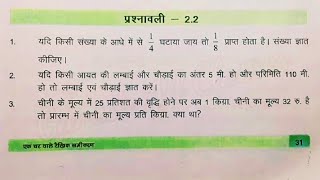 प्रश्नावली – 2.2
1. यदि किसी संख्या के आधे में से 1/4 घटाया जाय तो 1/8 प्राप्त होता है। संख्या ज्ञात
कीजिए।
2. यदि किसी आयत की लम्बाई और चौड़ाई का अंतर 5 मी. हो और परिमिति 110 मी.
हो तो लम्बाई एवं चौड़ाई ज्ञात करें।
3. चीनी के मूल्य में 25 प्रतिशत की वृद्धि होने पर अब 1 किग्रा. चीनी का मूल्य 32 रु. है
तो प्रारम्भ में चीनी का मूल्य प्रति किग्रा. क्या था?
एक चर वाले रैखिक समीकरण
31